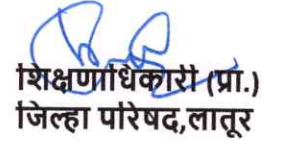 शिक्षणाधिकारी (प्रा.)
जिल्हा परिषद,लातूर